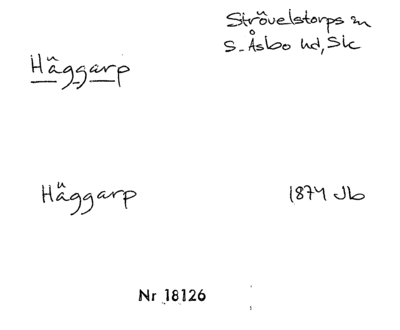 Häggarp
Strövelstorps sn
S. Åsbo hd, Sk
Häggarp
1874 Jb
Nr 18126